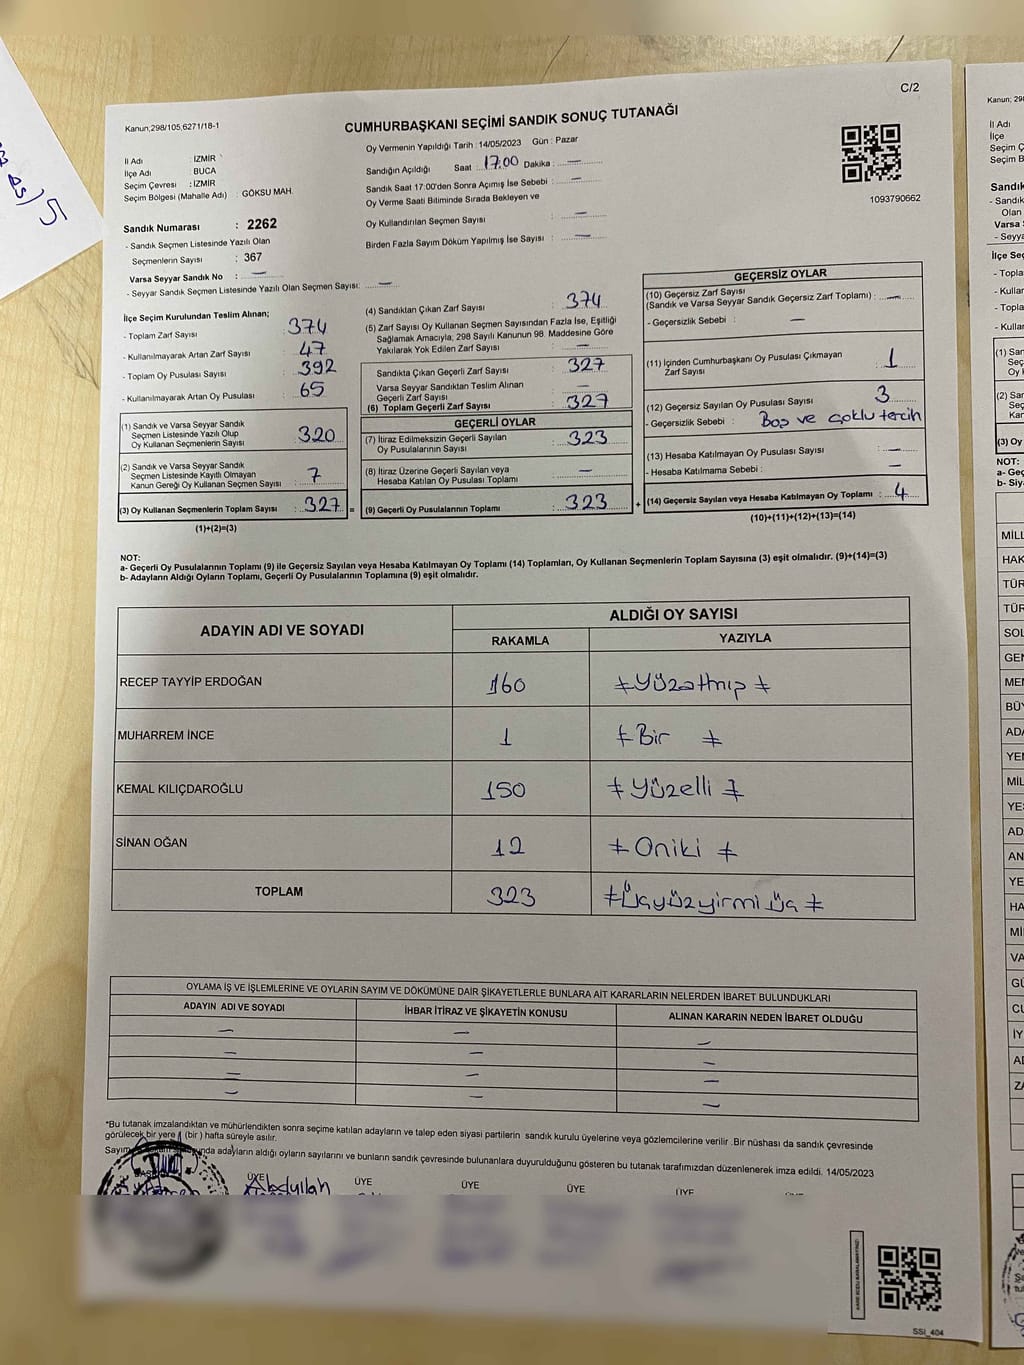 C/2
Kanun;298/105,6271/18-1
CUMHURBAŞKANI SEÇİMİ SANDIK SONUÇ TUTANAĞI
İl Adı : İZMİR
İlçe Adı : BUCA
Seçim Çevresi : İZMİR
Seçim Bölgesi (Mahalle Adı) : GÖKSU MAH.
Sandık Numarası : 2262
- Sandık Seçmen Listesinde Yazılı Olan
Seçmenlerin Sayısı : 367
Varsa Seyyar Sandık No : —
- Seyyar Sandık Seçmen Listesinde Yazılı Olan Seçmen Sayısı: —
Oy Vermenin Yapıldığı Tarih : 14/05/2023 Gün : Pazar
Sandığın Açıldığı Saat : 17:00 Dakika : —
Sandık Saat 17:00'den Sonra Açımış İse Sebebi : —
Oy Verme Saati Bitiminde Sırada Bekleyen ve
Oy Kullandırılan Seçmen Sayısı : —
Birden Fazla Sayım Döküm Yapılmış İse Sayısı : —
1093790662
İlçe Seçim Kurulundan Teslim Alınan;
- Toplam Zarf Sayısı : 374
- Kullanılmayarak Artan Zarf Sayısı : 47
- Toplam Oy Pusulası Sayısı : 392
- Kullanılmayarak Artan Oy Pusulası : 65
(1) Sandık ve Varsa Seyyar Sandık
Seçmen Listesinde Yazılı Olup
Oy Kullanan Seçmenlerin Sayısı : 320
(2) Sandık ve Varsa Seyyar Sandık
Seçmen Listesinde Kayıtlı Olmayan
Kanun Gereği Oy Kullanan Seçmen Sayısı : 7
(3) Oy Kullanan Seçmenlerin Toplam Sayısı : 327 =
(1)+(2)=(3)
(4) Sandıktan Çıkan Zarf Sayısı : 374
(5) Zarf Sayısı Oy Kullanan Seçmen Sayısından Fazla İse, Eşitliği
Sağlamak Amacıyla; 298 Sayılı Kanunun 98. Maddesine Göre
Yakılarak Yok Edilen Zarf Sayısı : —
Sandıkta Çıkan Geçerli Zarf Sayısı : 327
Varsa Seyyar Sandıktan Teslim Alınan
Geçerli Zarf Sayısı : —
(6) Toplam Geçerli Zarf Sayısı : 327
GEÇERLİ OYLAR
(7) İtiraz Edilmeksizin Geçerli Sayılan
Oy Pusulasının Sayısı : 323
(8) İtiraz Üzerine Geçerli Sayılan veya
Hesaba Katılan Oy Pusulası Toplamı : —
(9) Geçerli Oy Pusulalarının Toplamı : 323 +
GEÇERSİZ OYLAR
(10) Geçersiz Zarf Sayısı
(Sandık ve Varsa Seyyar Sandık Geçersiz Zarf Toplamı) : —
- Geçersizlik Sebebi : —
(11) İçinden Cumhurbaşkanı Oy Pusulası Çıkmayan
Zarf Sayısı : 1
(12) Geçersiz Sayılan Oy Pusulası Sayısı : 3
- Geçersizlik Sebebi : Boş ve çoklu tercih
(13) Hesaba Katılmayan Oy Pusulası Sayısı : —
- Hesaba Katılmama Sebebi : —
(14) Geçersiz Sayılan veya Hesaba Katılmayan Oy Toplamı : 4
(10)+(11)+(12)+(13)=(14)
NOT:
a- Geçerli Oy Pusulalarının Toplamı (9) ile Geçersiz Sayılan veya Hesaba Katılmayan Oy Toplamı (14) Toplamları, Oy Kullanan Seçmenlerin Toplam Sayısına (3) eşit olmalıdır. (9)+(14)=(3)
b- Adayların Aldığı Oyların Toplamı, Geçerli Oy Pusulalarının Toplamına (9) eşit olmalıdır.
ADAYIN ADI VE SOYADI ALDIĞI OY SAYISI
RAKAMLA YAZIYLA
RECEP TAYYİP ERDOĞAN 160 Yüzatmış
MUHARREM İNCE 1 Bir
KEMAL KILIÇDAROĞLU 150 Yüzelli
SİNAN OĞAN 12 Oniki
TOPLAM 323 Üçyüzyirmi üç
OYLAMA İŞ VE İŞLEMLERİNE VE OYLARIN SAYIM VE DÖKÜMÜNE DAİR ŞİKAYETLERLE BUNLARA AİT KARARLARIN NELERDEN İBARET BULUNDUKLARI
ADAYIN ADI VE SOYADI İHBAR İTİRAZ VE ŞİKAYETİN KONUSU ALINAN KARARIN NEDEN İBARET OLDUĞU
*Bu tutanak imzalandıktan ve mühürlendikten sonra seçime katılan adayların ve talep eden siyasi partilerin sandık kurulu üyelerine veya gözlemcilerine verilir .Bir nüshası da sandık çevresinde
görülecek bir yere 1 (bir ) hafta süreyle asılır.
adayların aldığı oyların sayılarını ve bunların sandık çevresinde bulunanlara duyurulduğunu gösteren bu tutanak tarafımızdan düzenlenerek imza edildi. 14/05/2023
ÜYE ÜYE ÜYE ÜYE ÜYE
Abdullah
SSI_404